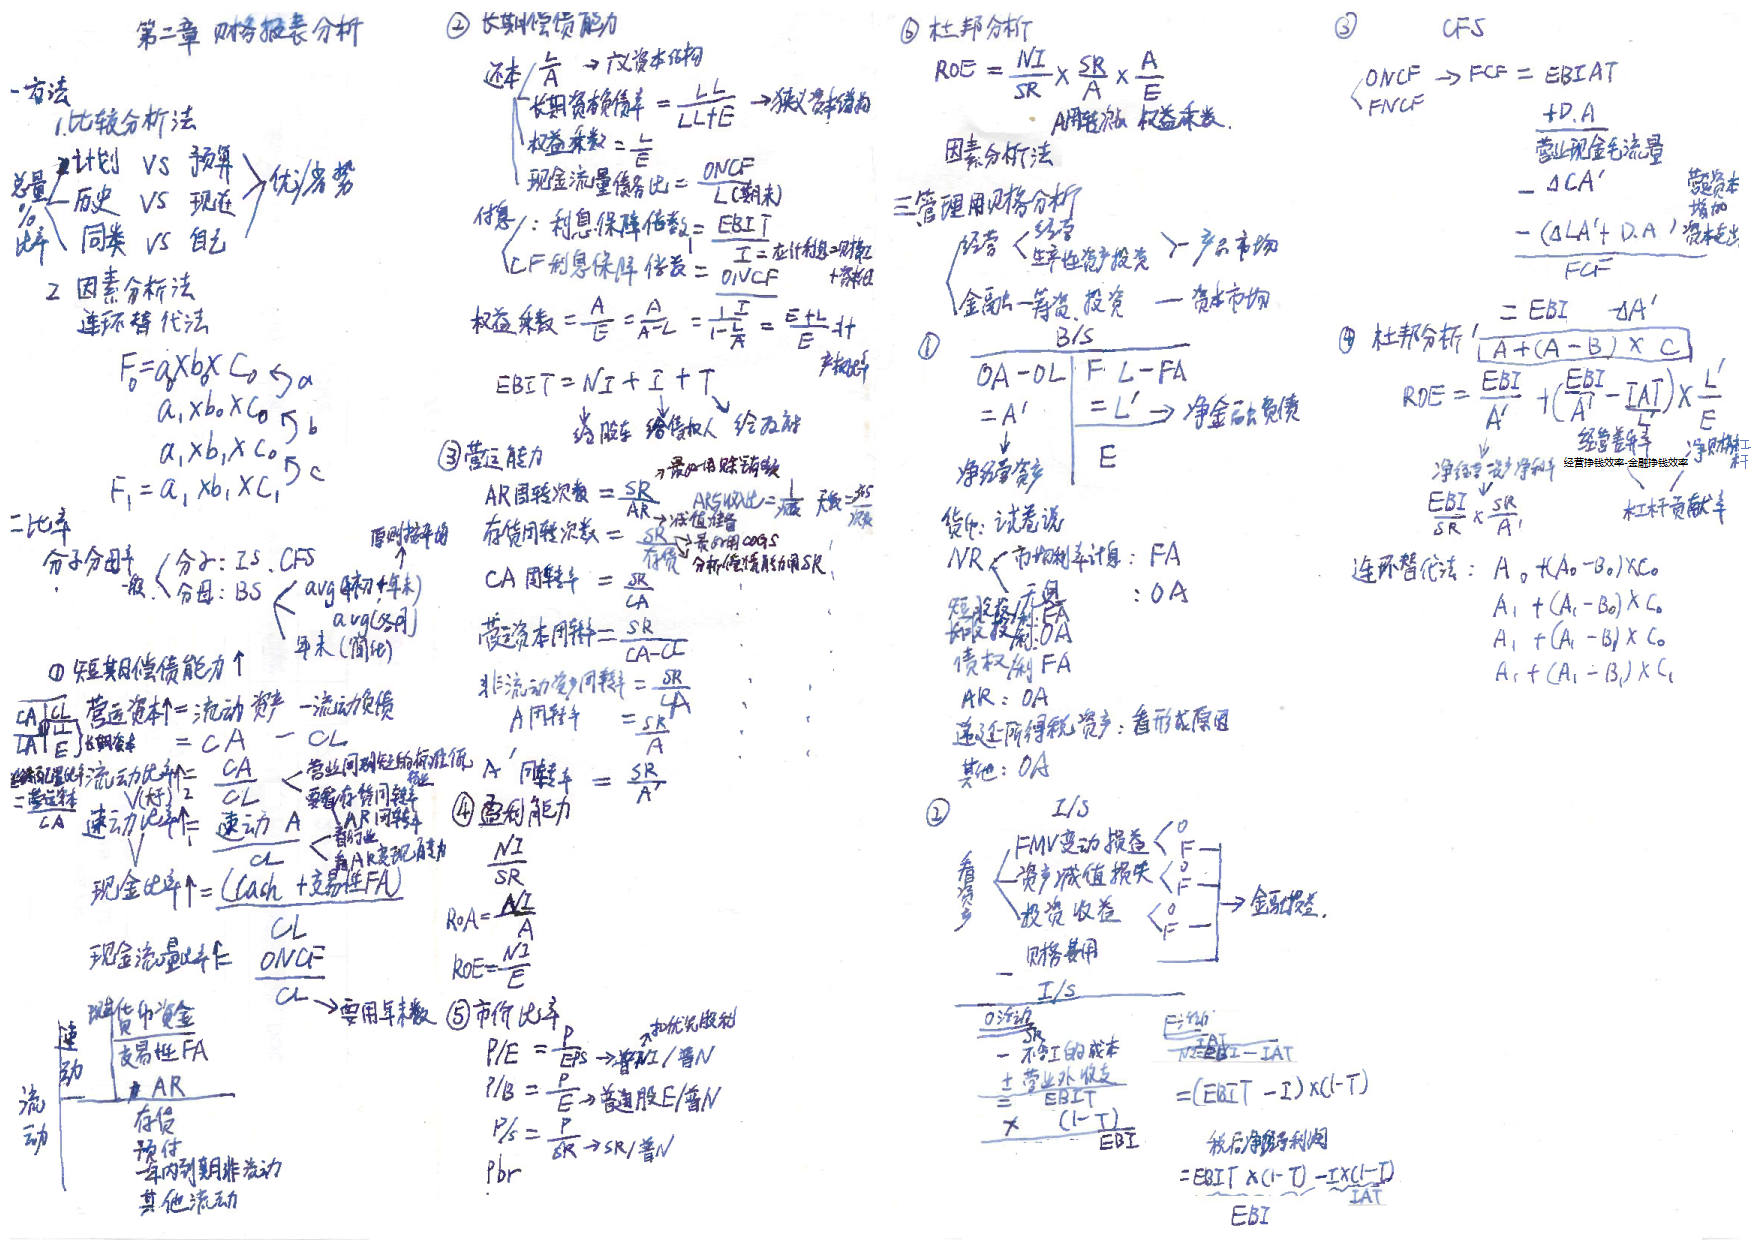 第二章 财务报表分析
一方法
1.比较分析法
总量 % 比率
计划 VS 预算
历史 VS 现在
同类 VS 自己
优/劣势
2 因素分析法
连环替代法
F₀=a₀×b₀×C₀
a
a₁×b₀×C₀
b
a₁×b₁×C₀
c
F₁=a₁×b₁×C₁
二比率
分子分母率
一般
分子: IS. CFS
分母: BS
原则按平均
avg(年初+年末)
avg(各月)
年末(简化)
① 短期偿债能力↑
CA CL
LA L
E
长期资本
营运资本↑=流动资产-流动负债
= CA - CL
流动比率↑= CA/CL
2
(好)
=营运资本/CA
营业周期短的
要看存货周转率
AR周转率
速动比率↑= 速动A/CL
1
看行业
看AR变现能力
现金比率↑=(Cash+交易性FA)/CL
现金流量比率↑= ONCF/CL→要用年末数
流动
速动
现金
货币资金
交易性FA
AR
存货
预付
一年内到期非流动
其他流动
② 长期偿债能力
还本
L/A → 广义资本结构
长期资本负债率= LL/(LL+E) →狭义资本结构
权益乘数= L/E
现金流量债务比= ONCF/L(期末)
付息: 利息保障倍数= EBIT/I
I=应计利息=财务I+资本化I
CF利息保障倍数= ONCF/I
权益乘数= A/E = A/(A-L) = 1/(1-L/A) = (E+L)/E =1+产权比率
EBIT=NI+I+T
给股东 给债权人 给政府
③营运能力
→最好用赊销数
AR周转次数= SR/AR
→减值准备
AR与收入比= 1/次数 天数= 365/次数
存货周转次数= SR/存货
→最好用COGS
分析偿债能力用SR
CA周转率 = SR/CA
营运资本周转率= SR/(CA-CL)
非流动资产周转率= SR/LA
A周转率 = SR/A
A' 周转率 = SR/A'
④盈利能力
NI/SR
ROA= NI/A
ROE= NI/E
⑤市价比率
扣优先股利
P/E = P/EPS →普NI/普N
P/B = P/E →普通股E/普N
P/S = P/SR →SR/普N
Pbr
⑥ 杜邦分析
ROE = NI/SR × SR/A × A/E
A周转次数 权益乘数.
因素分析法
三管理用财务分析
经营
经营
生产性资产投资
产品市场
金融—筹资.投资 — 资本市场
① B/S
OA-OL F L-FA
=A' =L' →净金融负债
净经营资产 E
货币: 试卷说
NR
市场利率计息: FA
无息 :OA
短股投/利:FA
长股投/利:OA
债权/利 FA
AR: OA
递延所得税资产: 看形成原因
其他: OA
② I/S
看资产
FMV变动损益 O F
资产减值损失 O F
投资收益 O F
财务费用
→金融损益.
-
I/S
O活动 F活动
SR
IAT
- 不含I的成本
NI=EBI-IAT
± 营业外收支
= EBIT
=(EBIT-I)×(1-T)
× (1-T)
EBI
税后净经营利润
=EBIT×(1-T)-I×(1-T)
EBI
IAT
③ CFS
ONCF → FCF = EBIAT
FNCF
+D.A
营业现金毛流量
- ΔCA' 营运资本增加
- (ΔLA'+D.A) 资本支出
FCF
= EBI ΔA'
④ 杜邦分析'
A+(A-B)×C
ROE= EBI/A' +(EBI/A' - IAT/L')× L'/E
经营差异率
净财务杠杆
经营挣钱效率-金融挣钱效率
净经营资产净利率
EBI/SR × SR/A'
杠杆贡献率
连环替代法: A₀+(A₀-B₀)×C₀
A₁+(A₁-B₀)×C₀
A₁+(A₁-B₁)×C₀
A₁+(A₁-B₁)×C₁